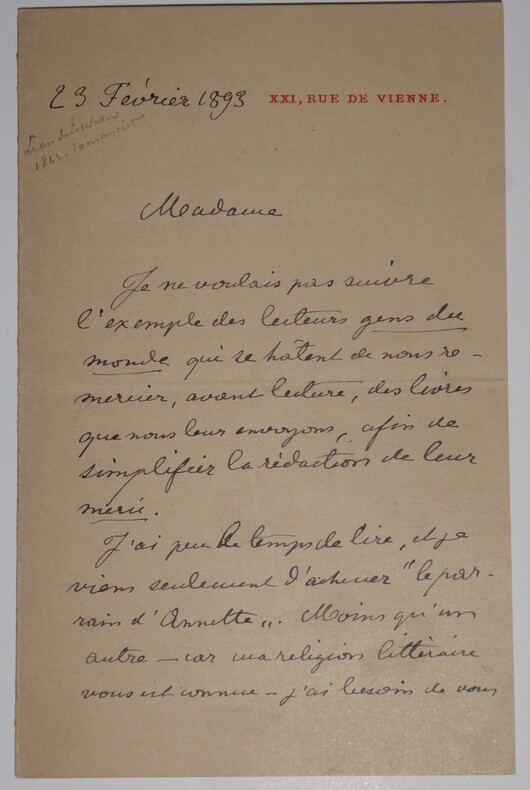 23 Février 1893 XXI, RUE DE VIENNE.
Léon de Tinseau
romancier
Madame
Je ne voulais pas suivre
l'exemple des lecteurs gens du
monde qui se hâtent de nous re-
mercier, avant lecture, des livres
que nous leur envoyons, afin de
simplifier la rédaction de leur
merci.
J'ai peu de temps de lire, et je
viens seulement d'achever "le par-
rain d'Annette„. Moins qu'un
autre — car ma religion littéraire
vous est connue — j'ai besoin de vous